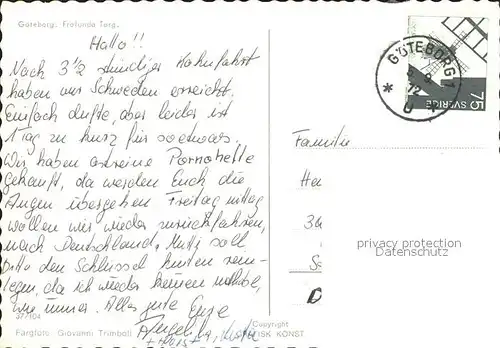 Göteborg. Frölunda Torg.
Hallo!!
Nach 3½ stündiger Bahnfahrt
haben wir Schweden erreicht.
Einfach dufte, aber leider ist
1 Tag zu kurz für soetwas.
Wir haben astreine Pornohefte
gekauft, da werden Euch die
Augen übergehen Freitag mittag
wollen wir wieder zurückfahren,
nach Deutschland. Mutti soll
bitte den Schlüssel hinten
legen, da ich wieder keinen
wie immer. Alles gute Eure
377104
Färgfoto: Giovanni Trimboli
Copyright
FISK KONST
GÖTEBORG 1
72
75 SVERIGE
Familie
privacy protection
Datenschutz